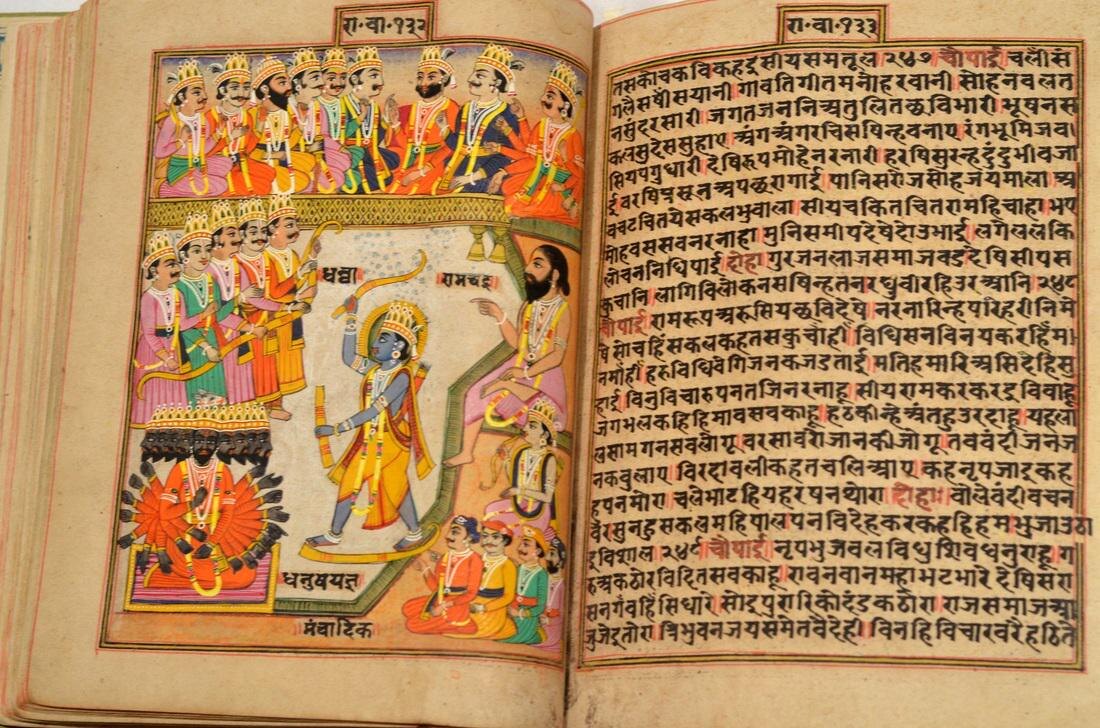 रा॰वा॰१३२
धन्वा
रामचंद्र
धनुषयज्ञ
रा॰वा॰१३३
सकोचक विकहहु सीयसमतूल २४७ चौपाई चलीं सं
गलै सषी सयानी गावति गीत मनोहर वानी सोह नवल त
न सुंदर सारी जगत जननि अतुलित छवि भारी भूषन स
कल सुदेस सुहाए अंग अंग रचि सषिन्ह वनाए रंगभूमि जव
सिय पगु धारी देषि रूप मोहे नर नारी हरषि सुरन्ह दुंदुभी वजा
ई वरषि प्रसून अपछरा गाई पानि सरोज सोह जयमाला अ
वचट चितये सकल भुवाला सीय चकित चित रामहि चाहा भए
मोह वस सव नरनाहा मुनि समीप देषे दोउ भाई लगे ललकि
लोचन निधि पाई दोहा गुरजन लाज समाज वड देषि सीय स
कुचानि लागि विलोकन सषिन्ह तन रघुवीरहि उर आनि २४८
चौपाई राम रूप अरु सिय छवि देषे नर नारिन्ह परिहरी निमे
षे सोचहिं सकल कहत सकुचाहीं विधि सन विनय करहिं म
न माहीं हरु विधि वेगि जनक जडताई मति हमारि असि देहि सु
हाई विनु विचारु पनु तजि नरनाहू सीय राम कर करइ विवाहू
जग भल कहिहि भाव सव काहू हठ कीन्हे अंतहु उर दाहू यह ला
लसा मगन सव लोगू वर सावरो जानकी जोगू तव वंदीजन ज
नक वुलाए विरदावली कहत चलि आए कह नृप जाइ कह
हु पन मोरा चले भाट हिय हरष न थोरा दोहा वोले वंदी वचन
वर सुनहु सकल महिपाल पन विदेह कर कहहिं हम भुजा उठा
इ विशाल २४९ चौपाई नृप भुजवल विधु शिवधनु राहू ग
रुअ कठोर विदित सव काहू रावन वान महाभट भारे देषि सरा
सन गवहिं सिधारे सोइ पुरारि कोदंड कठोरा राज समाज आ
जु जेइ तोरा त्रिभुवन जय समेत वैदेही विनहि विचार वरै हठि ते